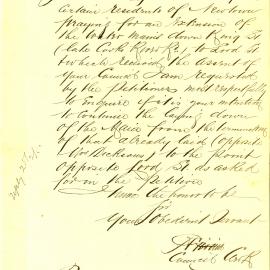 certain residents of Newtown
praying for an extension of
the Water mains down King St
(late Cooks River Rd) to Lord St
which received the assent of
your Council I am requested
by the petitioners most respectfully
to enquire if it is your intention
to continue the laying down
of the Main from the termination
of that already laid (opposite
to the point
opposite Lord St as asked
for in the Petition
I have the honor to be
Sir
Your Obedient Servant
Council Clerk